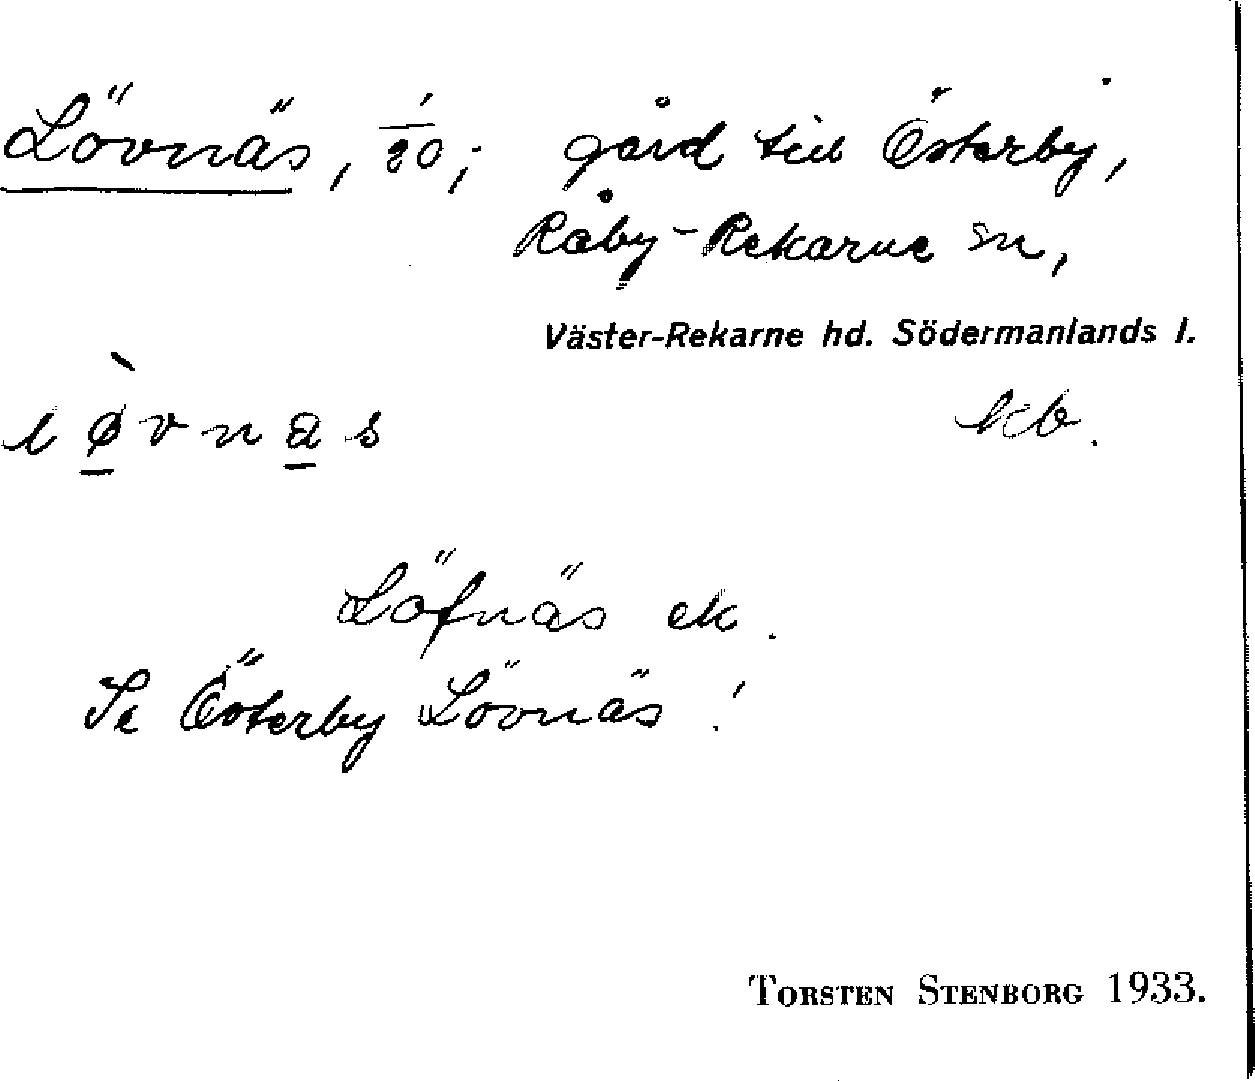 Lövnäs, 1/20; gård till Österby,
Råby-Rekarne sn,
Väster-Rekarne hd. Södermanlands l.
lø̀vnas kb.
Löfnäs ek.
Se Österby Lövnäs!
TORSTEN STENBORG 1933.